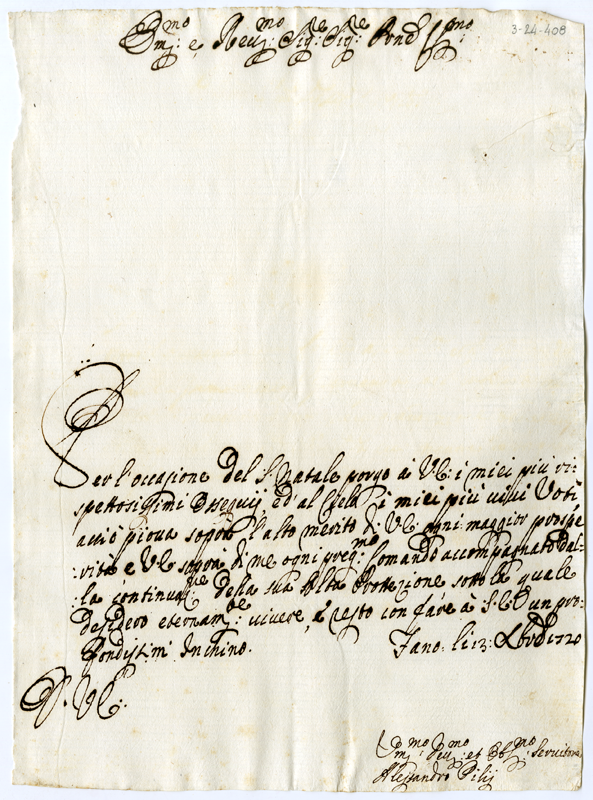 3-24-408
Em:mo e Rev:mo Sig:re Sig:re
Per l'occasione del S. Natale porgo ai V.E: i miei più ri-
spettosissimi Ossequij, ed' al Cielo i miei più vivi Voti,
acciò piova sopra l'alto merito di V.E. ogni maggior prospe
:rità e V.E. sopra di me ogni preg:mo Comando accompagnato dal-
:la continuaz:ne della sua Alta Protezione sotto la quale
desidero eternam:te vivere, e resto con fare à un pro-
fondissimi Inchino. Fano. li 13: Xbre 1720
D. V.E:
et Obl:mo Servitore
Alessandro Pilij